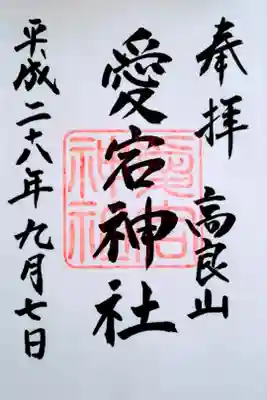 奉拝
高良山
愛宕神社
平成二十八年九月七日
愛宕
神社